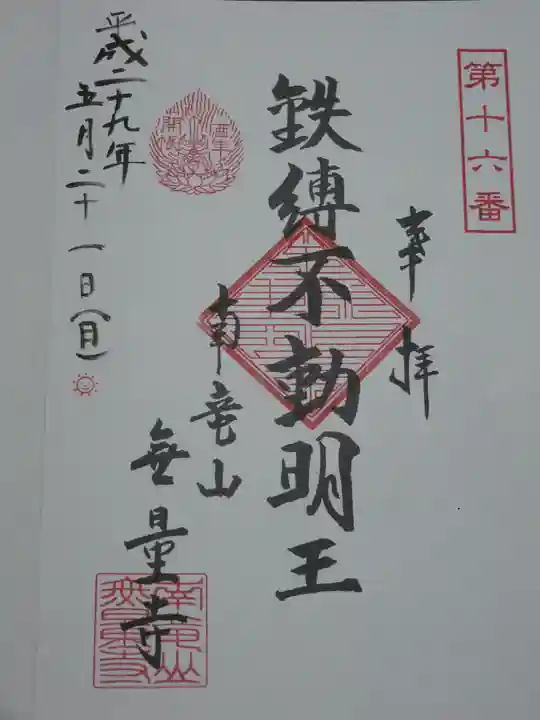 第十六番
奉拝
鉄縛不動明王
南竜山
無量寺
酉年
開帳
平成二十九年
五月二十一日(日)